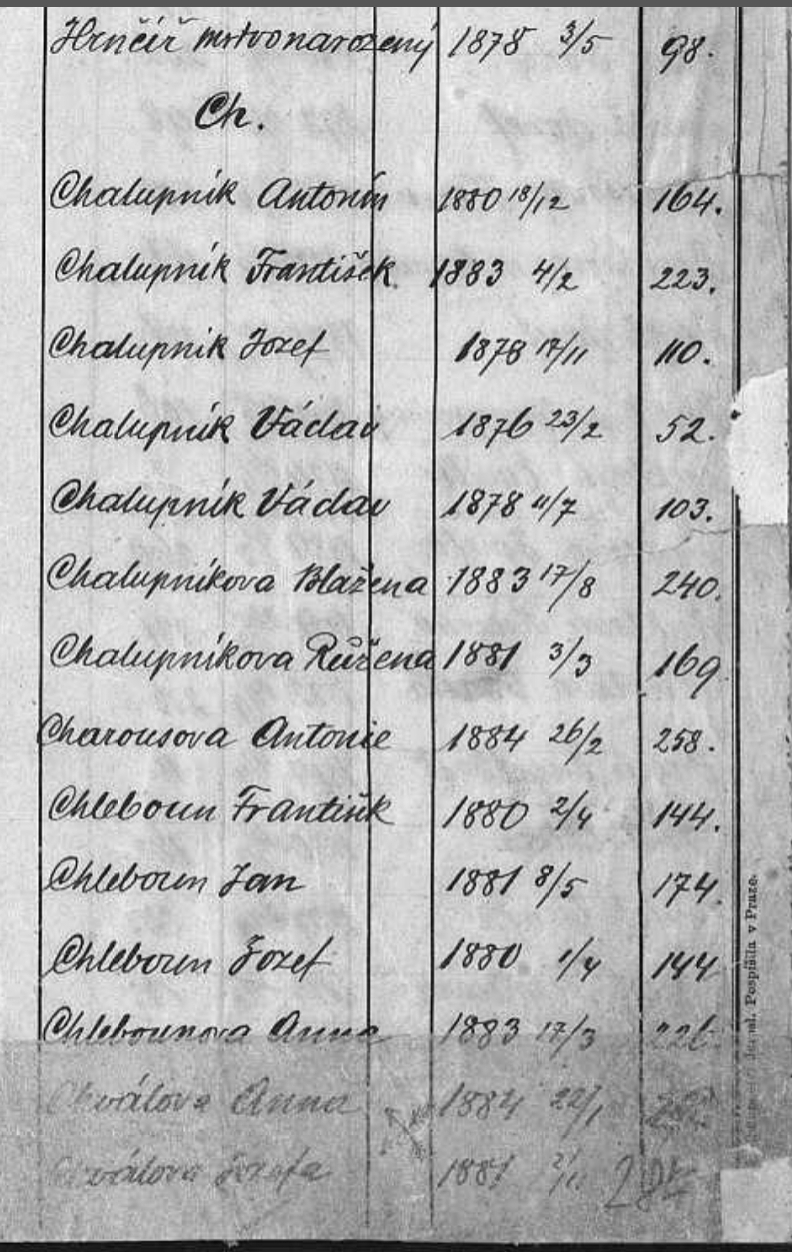 Hrnčíř mrtvonarozený 1878 3/5 98.
Ch.
Chalupník Antonín 1880 18/12 164.
Chalupník František 1883 4/2 223.
Chalupník Jozef 1878 17/11 110.
Chalupník Václav 1876 23/2 52.
Chalupník Václav 1878 11/7 103.
Chalupníkova Blažena 1883 17/8 240.
Chalupníkova Růžena 1881 3/3 169
Charousova Antonie 1884 26/2 258.
Chleboun František 1880 2/4 144.
Chleboun Jan 1881 8/5 174.
Chleboun Jozef 1880 1/4 144
Chlebounova Anna 1883 17/3
Chválova Anna 1884 22/1
Chválova Jozefa 1881
Pospíšila v Praze.